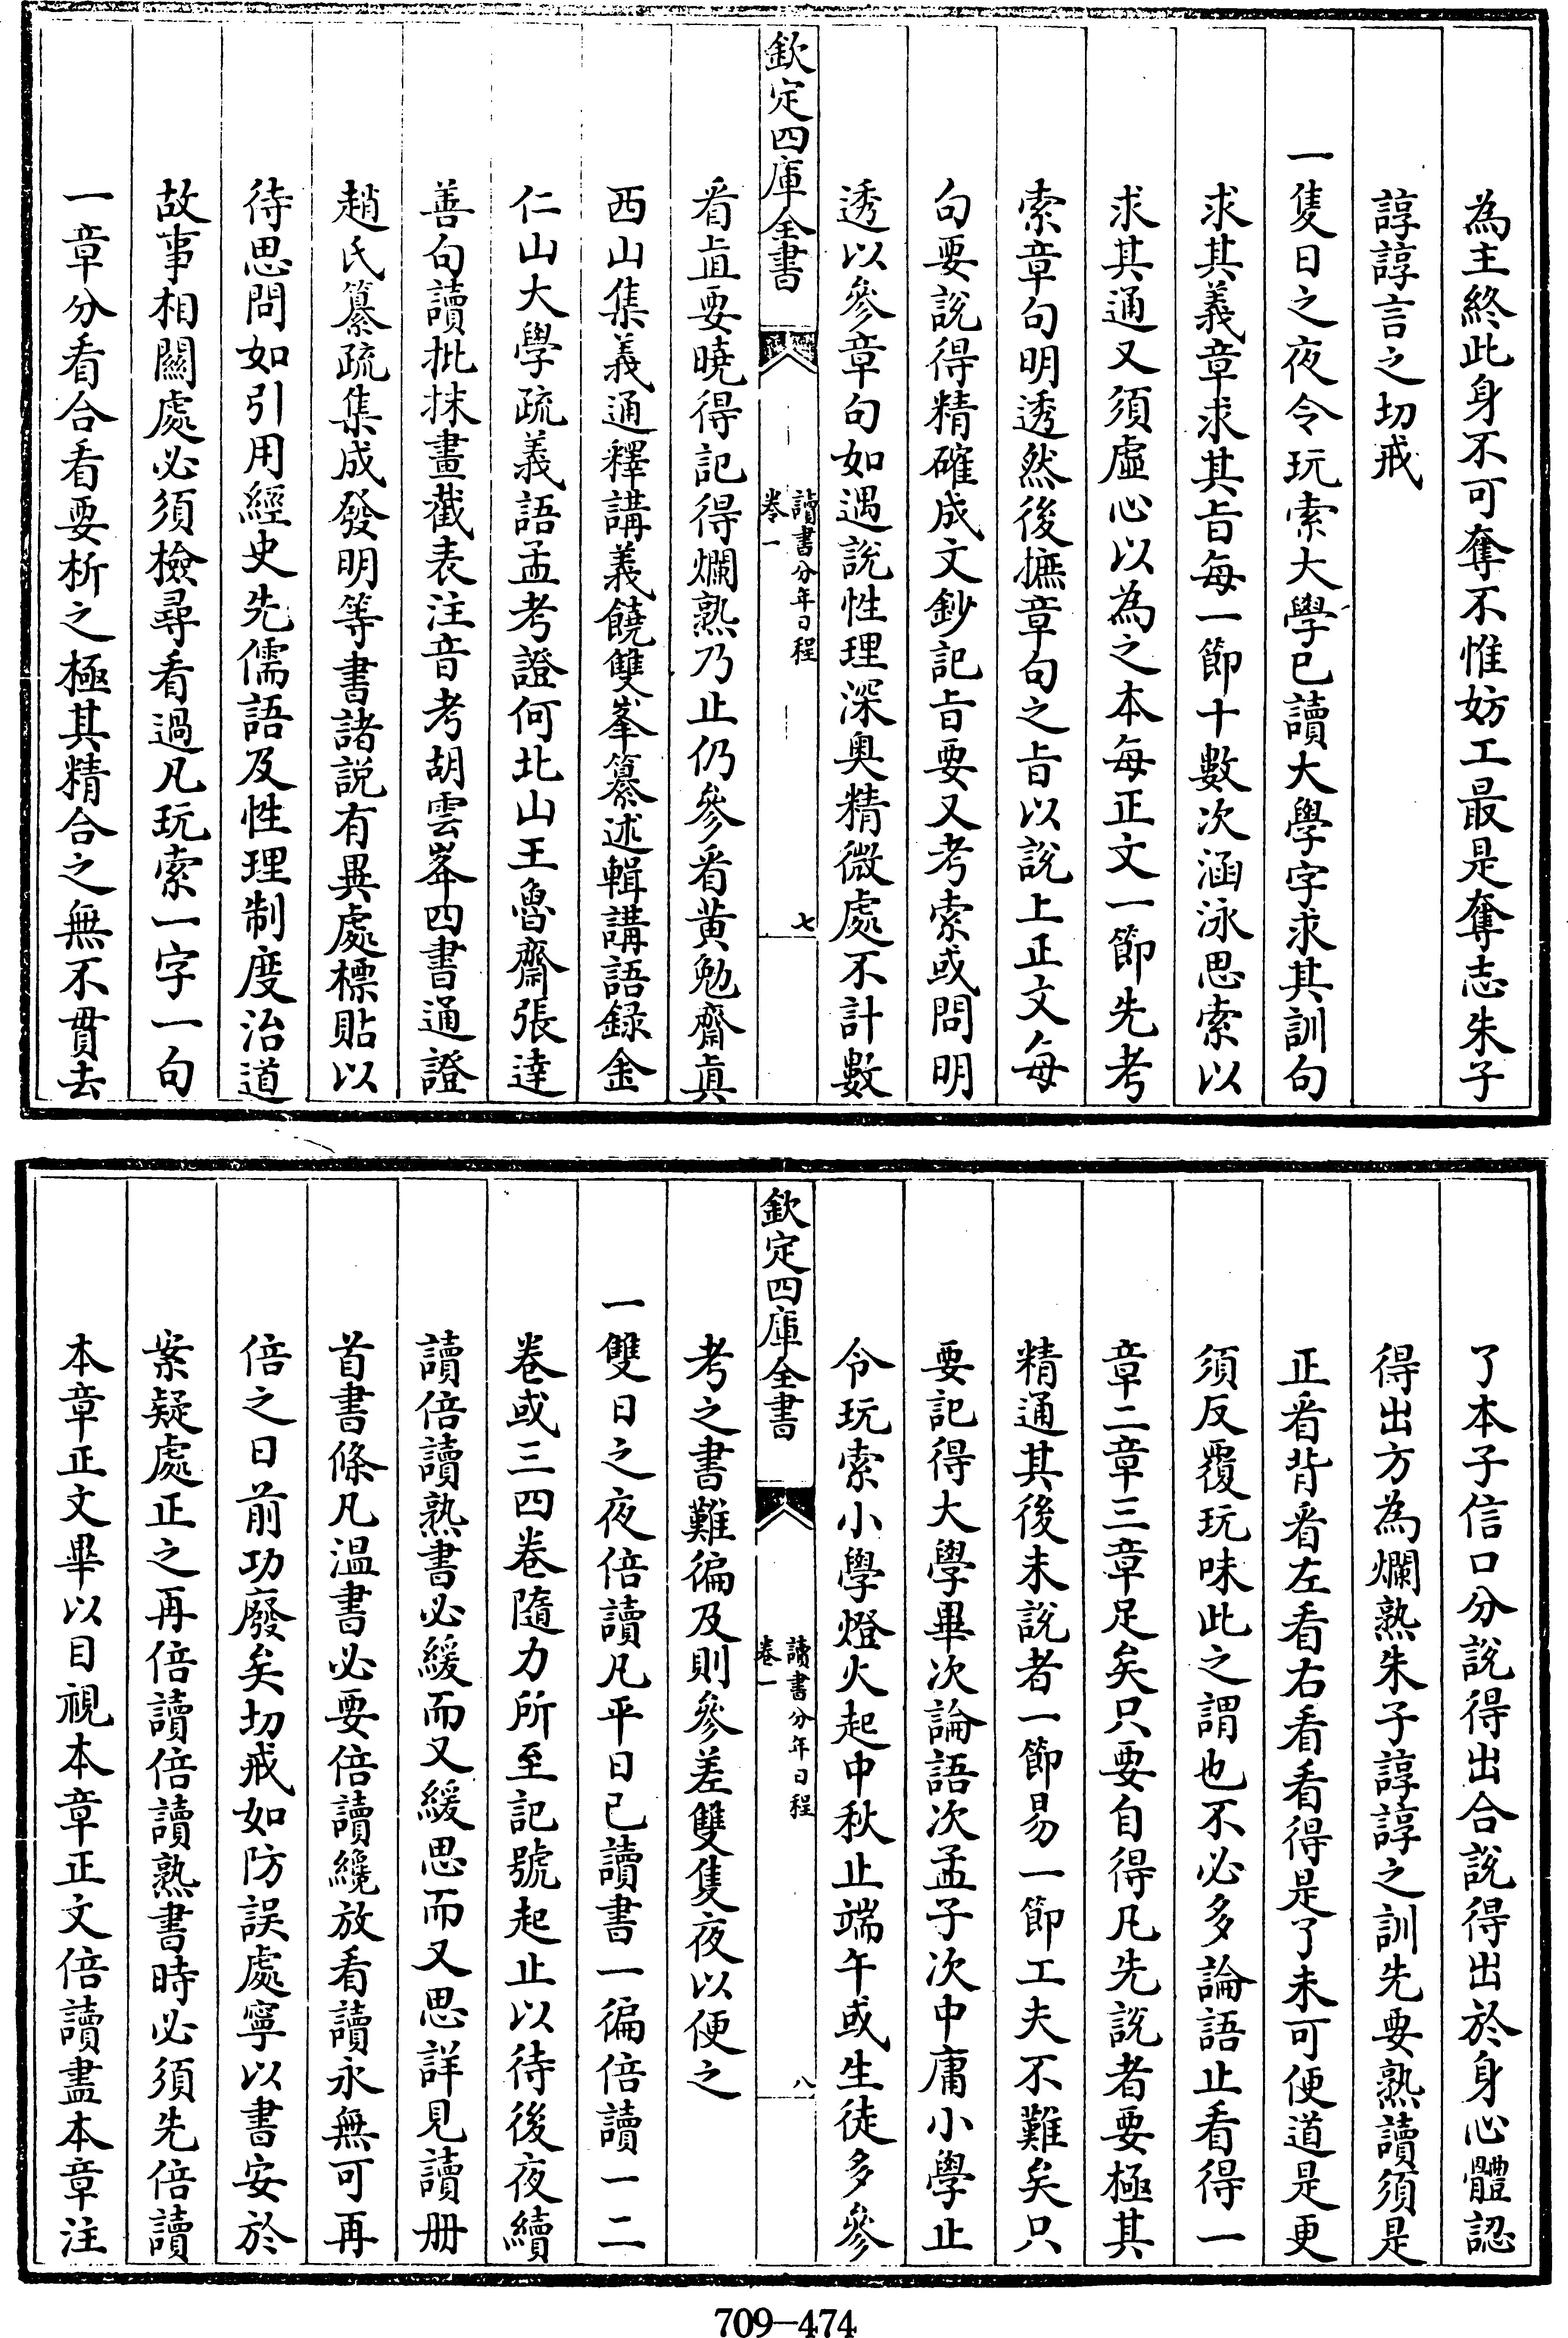 為主終此身不可奪不惟妨工最是奪志朱子
諄諄言之切戒
一隻日之夜令玩索大學已讀大學字求其訓句
求其義章求其旨每一節十數次涵泳思索以
求其通又須虛心以為之本每正文一節先考
索章句明透然後摭章句之旨以說上正文每
句要說得精確成文鈔記旨要又考索或問明
透以參章句如遇說性理深奥精微處不計數
欽定四庫全書
讀書分年日程
卷一
七
看直要曉得記得爛熟乃止仍參看黄勉齋真
西山集義通釋講義饒雙峯纂述輯講語録金
仁山大學疏義語孟考證何北山王魯齋張達
善句讀批抹畫截表注音考胡雲峯四書通證
趙氏纂疏集成發明等書諸説有異處標貼以
待思問如引用經史先儒語及性理制度治道
故事相關處必須檢尋看過凡玩索一字一句
一章分看合看要析之極其精合之無不貫去
了本子信口分說得出合說得出於身心體認
得出方為爛熟朱子諄諄之訓先要熟讀須是
正看背看左看右看看得是了未可便道是更
須反覆玩味此之謂也不必多論語止看得一
章二章三章足矣只要自得凡先說者要極其
精通其後未說者一節易一節工夫不難矣只
要記得大學畢次論語次孟子次中庸小學止
令玩索小學燈火起中秋止端午或生徒多參
欽定四庫全書
讀書分年日程
卷一
八
考之書難徧及則參差雙隻夜以便之
一雙日之夜倍讀凡平日已讀書一徧倍讀一二
卷或三四卷隨力所至記號起止以待後夜續
讀倍讀熟書必緩而又緩思而又思詳見讀册
首書條凡温書必要倍讀纔放看讀永無可再
倍之日前功廢矣切戒如防誤處寧以書安於
案疑處正之再倍讀倍讀熟書時必須先倍讀
本章正文畢以目視本章正文倍讀盡本章注
709-474